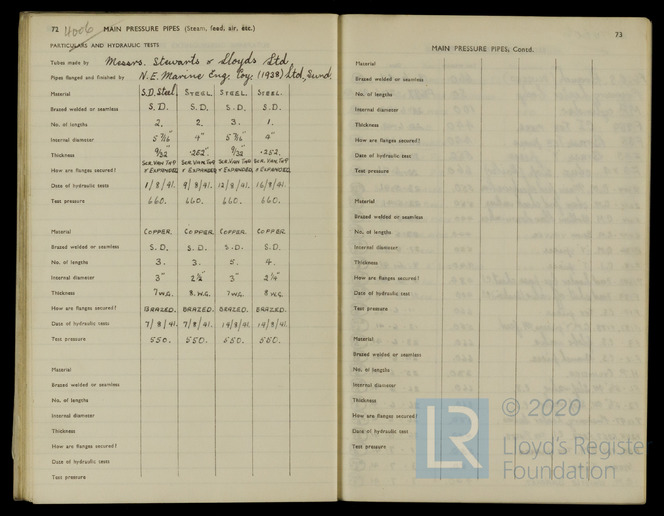 72 4006 MAIN PRESSURE PIPES (Steam, feed, air, etc.)
PARTICULARS AND HYDRAULIC TESTS
Tubes made by Messrs. Stewarts & Lloyds Ltd,
Pipes flanged and finished by N.E. Marine Eng. Coy. (1938) Ltd, Sund.
Material S.D. Steel. STEEL. STEEL. STEEL.
Brazed welded or seamless S.D. S.D. S.D. S.D.
No. of lengths 2. 2. 3. 1.
Internal diameter 5 7/16" 4" 5 7/16" 4"
Thickness 9/32" .252" 9/32" .252.
How are flanges secured? SCR. VAN TAP & EXPANDED SCR. VAN TAP & EXPANDED SCR. VAN TAP & EXPANDED SCR. VAN TAP & EXPANDED
Date of hydraulic tests 1/8/41. 9/8/41. 12/8/41. 16/8/41.
Test pressure 660. 660. 660. 660.
Material COPPER. COPPER. COPPER. COPPER.
Brazed welded or seamless S.D. S.D. S.D. S.D.
No. of lengths 3. 3. 5. 4.
Internal diameter 3" 2½" 3" 2¼"
Thickness 7 W.G. 8. W.G. 7 W.G. 8 W.G.
How are flanges secured? BRAZED. BRAZED. BRAZED. BRAZED.
Date of hydraulic tests 7/8/41. 7/8/41. 14/8/41. 14/8/41.
Test pressure 550. 550. 550. 550.
Material
Brazed welded or seamless
No. of lengths
Internal diameter
Thickness
How are flanges secured?
Date of hydraulic tests
Test pressure
73
MAIN PRESSURE PIPES, Contd.
Material
Brazed welded or seamless
No. of lengths
Internal diameter
Thickness
How are flanges secured?
Date of hydraulic tests
Test pressure
Material
Brazed welded or seamless
No. of lengths
Internal diameter
Thickness
How are flanges secured?
Date of hydraulic tests
Test pressure
Material
Brazed welded or seamless
No. of lengths
Internal diameter
Thickness
How are flanges secured?
Date of hydraulic tests
Test pressure
LR © 2020
Lloyd's Register
Foundation